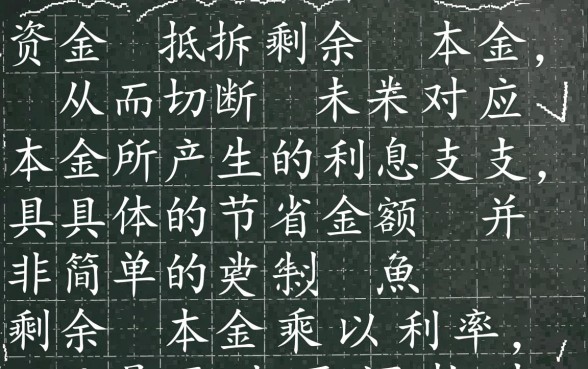 资金 抵拆剩余 本金，
从而切断 未来对应
本金所产生的利息支支，
具具体的节省金额 并
非简单的 魚
剩余 本金乘以利率，